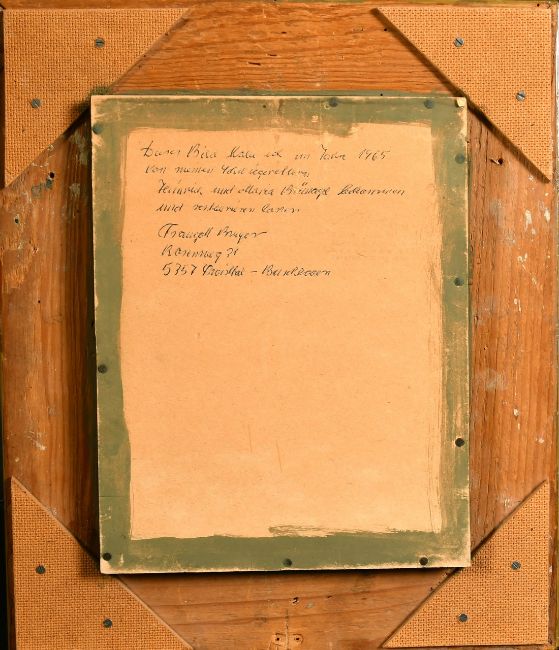 Dieses Bild habe ich im Jahre 1965
von meinen Schwiegereltern
Heinrich und Maria bekommen
und restaurieren lassen
Traugott Breyer
Rosenweg 31
5357 Swisttal - Buschhoven